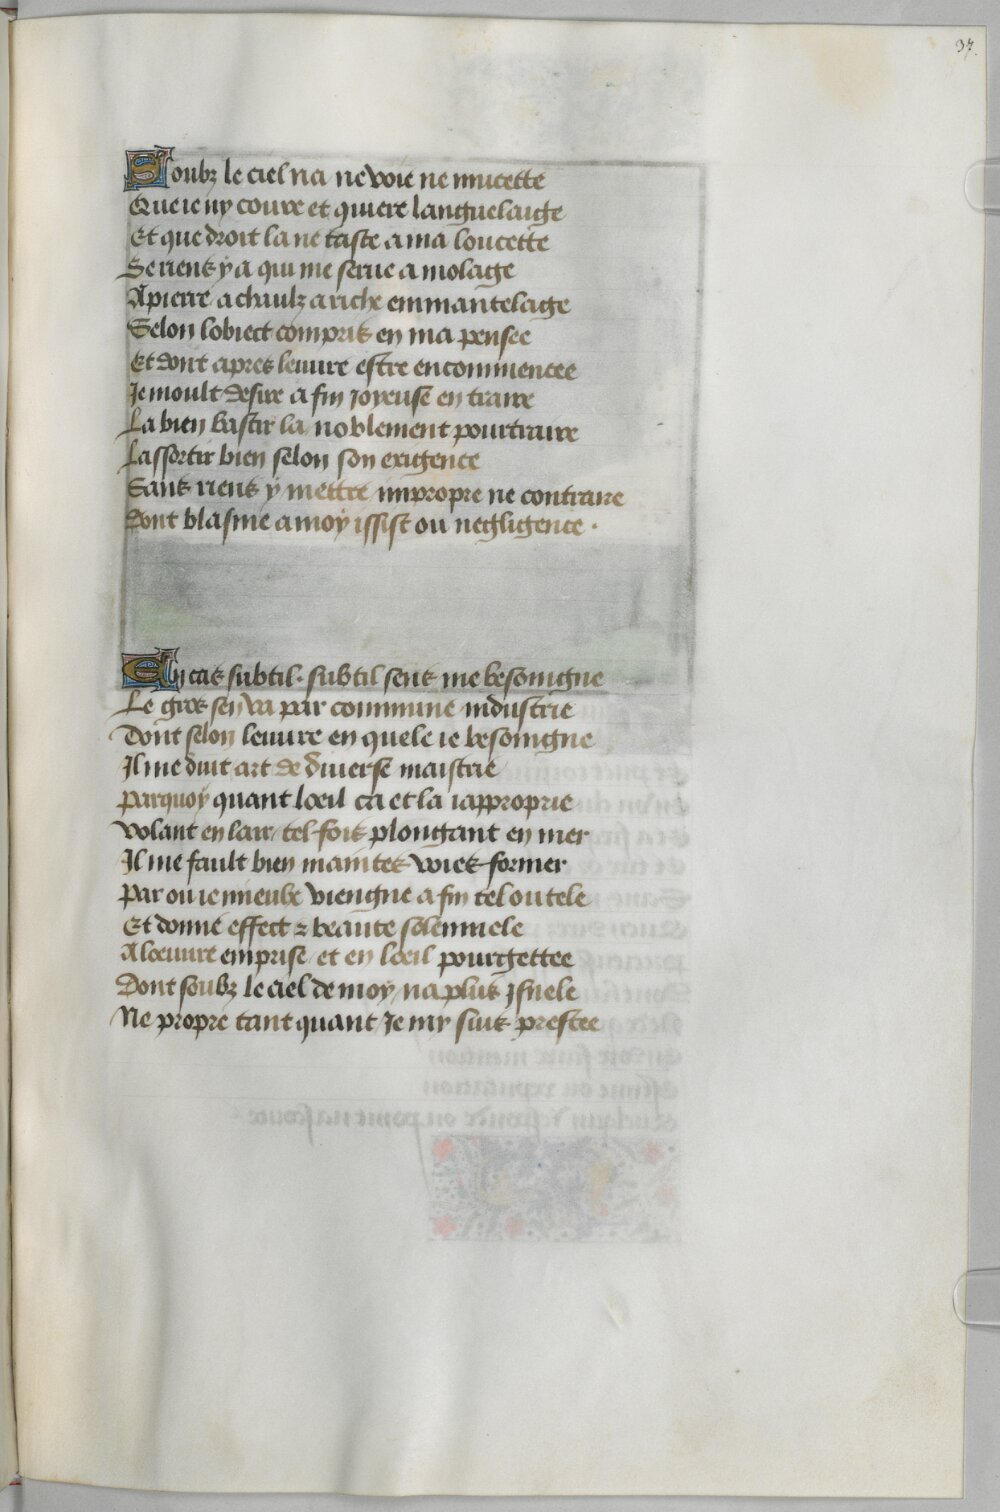 37.
Soubz le ciel na ne voie ne mucette
Que ie ny coure et quiere languelaige
Et que droit la ne taste a ma loucette
Se riens y a qui me serue a molage
A pierre a chaulz a riche emmantelage
Selon lobiect compris en ma pensee
Et dont apres leuure estre encommencee
Je moult desire a fin joyeuse en traire
La bien bastir la noblement pourtraire
Lassortir bien selon son exigence
Sans riens y mettre impropre ne contraire
Dont blasme a moy issist ou negligence .
En cas subtil . subtil sens me besoingne
Le gros sen va par commune industrie
Dont selon leuure en quele ie besoingne
Il me duit art de diuerse maistrie
Parquoy quant loeil ca et la iapproprie
Volant en lair / tel fois plongant en mer
Il me fault bien maintes voies former
Par ou ie mieulx viengne a fin tel ou tele
Et donne effect & beaute solennele
A loeuure emprise / et en loeil pourgettee
Dont soubz le ciel de moy / na plus jsnele
Ne propre tant quant Je my suis prestee